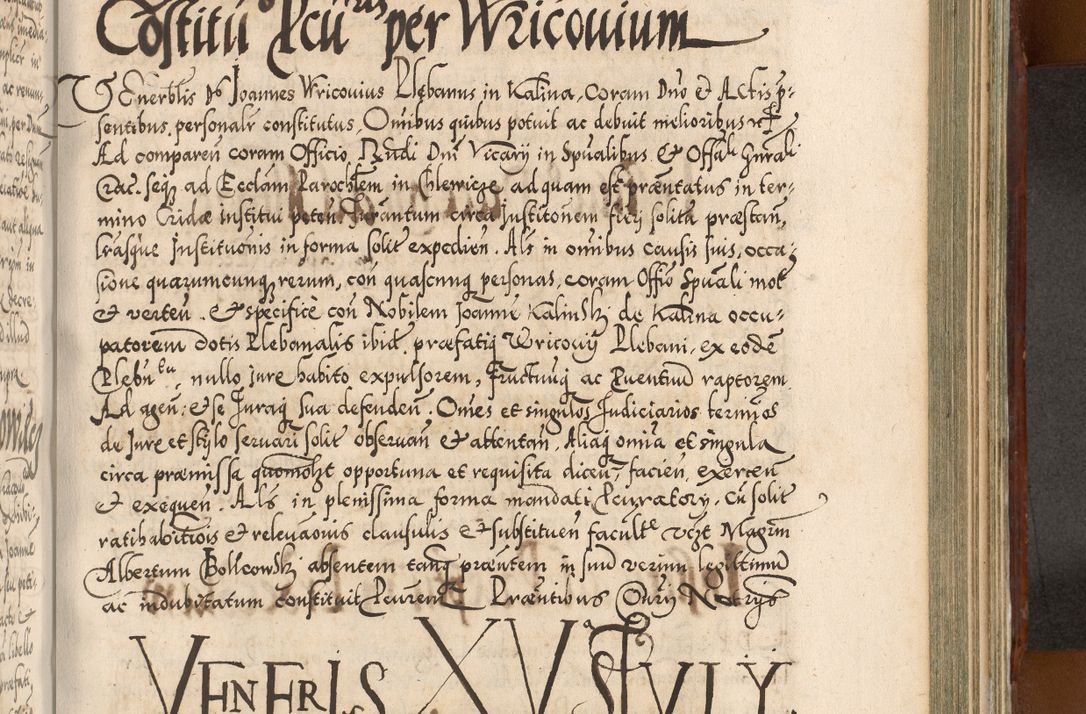 Costitu Pcu ris per Wricouium
VEnerblis Ds Joannes Wricouius Plebanus in Kalina, coram Dno et Actis p-
sentibus personalr constitutus, Omibus quibus potuit ac debuit melioribus
Ad comparen coram Officio Rndi Dni Vicarij in Spualibus et Offali Gnrali
Crac. seqz ad Ecclam Parochlem in Chlewicze ad quam est præntatus in ter-
mino Cridæ institui peten. Jurantum circa Institonem fieri solita præstan,
lrasque Institutonis in forma solit expedien. Als in omibus causis suis, occa-
sione quarumcunqz rerum, con quascunq personas, coram Offio Spuali mot
et verten. et specifice con Nobilem Joanne Kalinski de Kalina occu-
patorem dotis Plebanalis ibid. præfatiq Wricouij Plebani, ex eode
Plebn tu, nullo jure habito expulsorem, Fructuuq ac Puentiu raptorem
Ad agen: et se Juraq sua defenden. Omes et singulos Judiciarios terminos
de Jure et stylo servari solit observan et attentan, Aliaq omia et singula
circa præmissa quomolzt opportuna et requisita dicen, facien, exercen
et exequen. Als in plenissima forma mandati Pcuratory, cu solit
ratihabitiois et relevaois clausulis et substituen facult te vczt Magrm
Albertum Bolkowski absentem tanq præntem in suu verum legittimu
ac indubitatum constituit Pcurem Præntibus Notrijs
VENERIS XV JULY